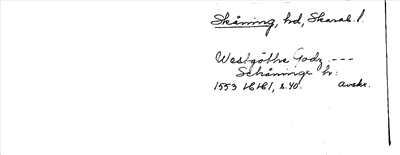 Skåning, hd, Skarab. l.
Westgötha Godz ---
Schåninge hr:
1553 16161, s. 40. avskr.